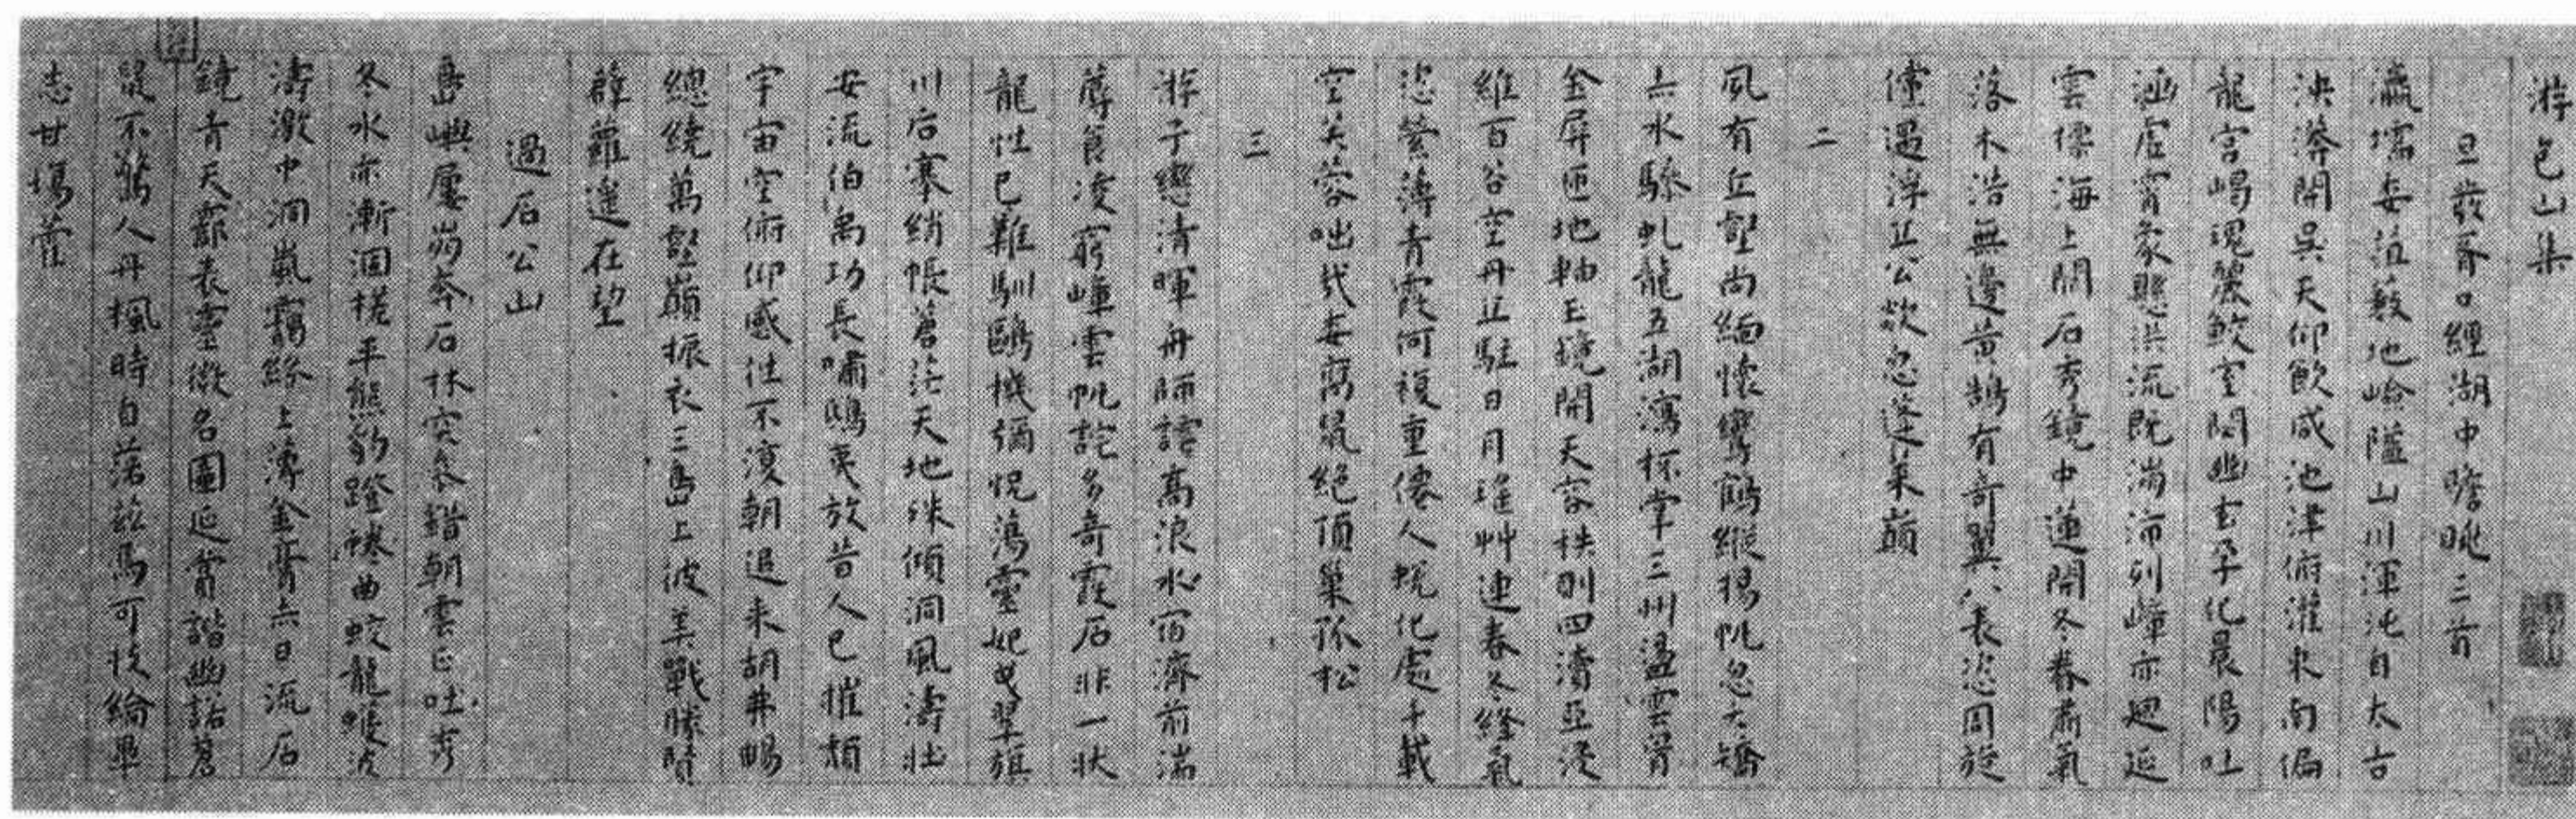 游包山集
旦發胥口經湖中瞻眺三首
瀛壖委沮藪地崄隘山川渾沌自太古
泱漭開吳天仰飲咸池津俯灌東南偏
龍宮嵑瑰麗鮫室閟幽玄孕化晨陽吐
涵虛宵象懸洪流既湍沛列嶂亦迴延
雲標海上闕石秀鏡中蓮開冬春肅氣
落木浩無邊黃鵠有奇翼八表恣周旋
儻遇浮丘公欻忽蓬萊巔
二
夙有丘壑尚緬懷鸞鶴縱揚帆忽六矯
六水驂虬龍五湖瀉杯掌三州盪雲胷
金屏匝地軸玉鏡開天容秩則四瀆亞浸
維百谷空丹丘駐日月瑤艸連春冬絳氣
恣縈薄青霞何複重僊人蛻化處千載
空芙蓉咄哉委腐鼠絕頂巢孤松
三
游子戀清暉舟師謹高浪水宿濟前湍
蓐食凌窮嶂雲帆詫多奇霞石非一狀
龍性已難馴鷗機彌怳蕩靈妃曳翠旗
川后褰綃帳蒼茫天地殊傾洞風濤壯
安流伯禹功長嘯鴟夷放昔人已摧頹
宇宙空俯仰感往不湏朝追来胡弗暢
總繞萬壑巔振衣三島上彼美戰勝賢
薜蘿遥在望
過石公山
島嶼屢崩奔石林突參錯朝雲正吐秀
冬水亦漸涸槎平熊豹蹬𥻘曲蛟龍蠖波
濤激中洞嵐靄絲上薄金膏六日流石
鏡青天霩表靈徵名圖延賞諧幽諾蒼
鼠不驚人丹楓時自落茲焉可投綸畢
志甘塲藿